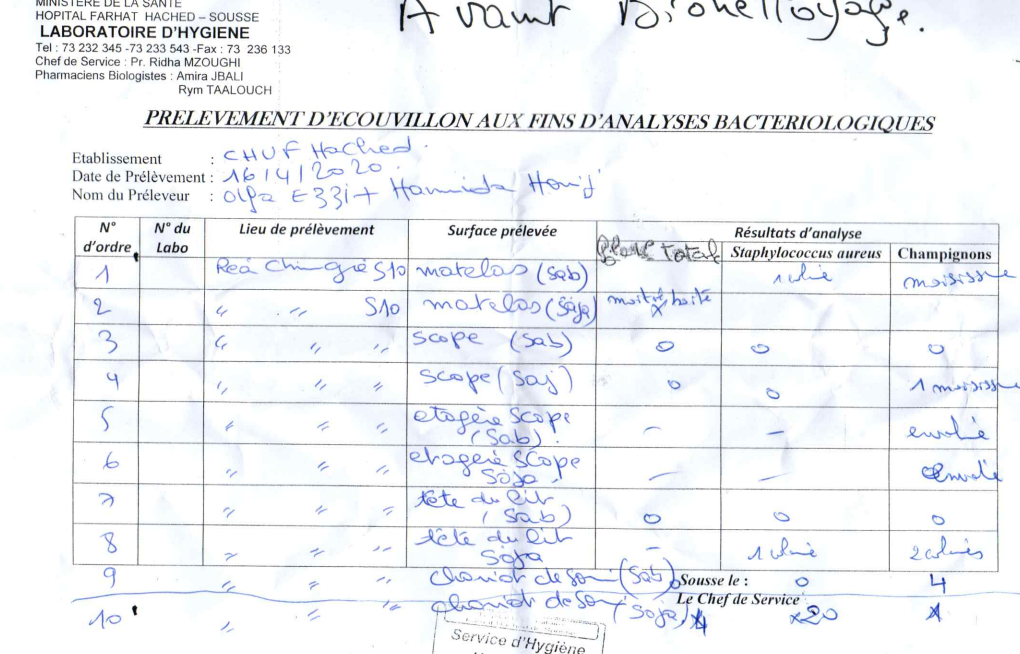 MINISTERE DE LA SANTE
HOPITAL FARHAT HACHED – SOUSSE
LABORATOIRE D'HYGIENE
Tel : 73 232 345 -73 233 543 -Fax : 73 236 133
Chef de Service : Pr. Ridha MZOUGHI
Pharmaciens Biologistes : Amira JBALI
Rym TAALOUCH
Avant Bionettoyage.
PRELEVEMENT D'ECOUVILLON AUX FINS D'ANALYSES BACTERIOLOGIQUES
Etablissement : CHUF Hached.
Date de Prélèvement : 16/4/2020.
Nom du Préleveur : Olfa Ezzi + Hamida
N° d'ordre N° du Labo Lieu de prélèvement Surface prélevée Résultats d'analyse
Total Staphylococcus aureus Champignons
1 Réa Chirurgie S10 matelas (Sab) 1 moisissure
2 " " S10 matelas (Soja)
3 " " " scope (Sab) 0 0 0
4 " " " scope (Soj) 0 0 1 moisissure
5 " " " etagère scope (Sab). – – envahie
6 " " " etagère scope Soja. – – envahie
7 " " " tête du lit (Sab) 0 0 0
8 " " " tête du lit Soja – 1 2 colonies
9 " " " chariot de soin (Sab) 0 Sousse le : 0 4
10 " " chariot de soin (Soja) Le Chef de Service x20
Service d'Hygiène